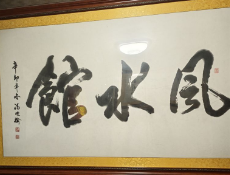 風水館
辛卯年冬